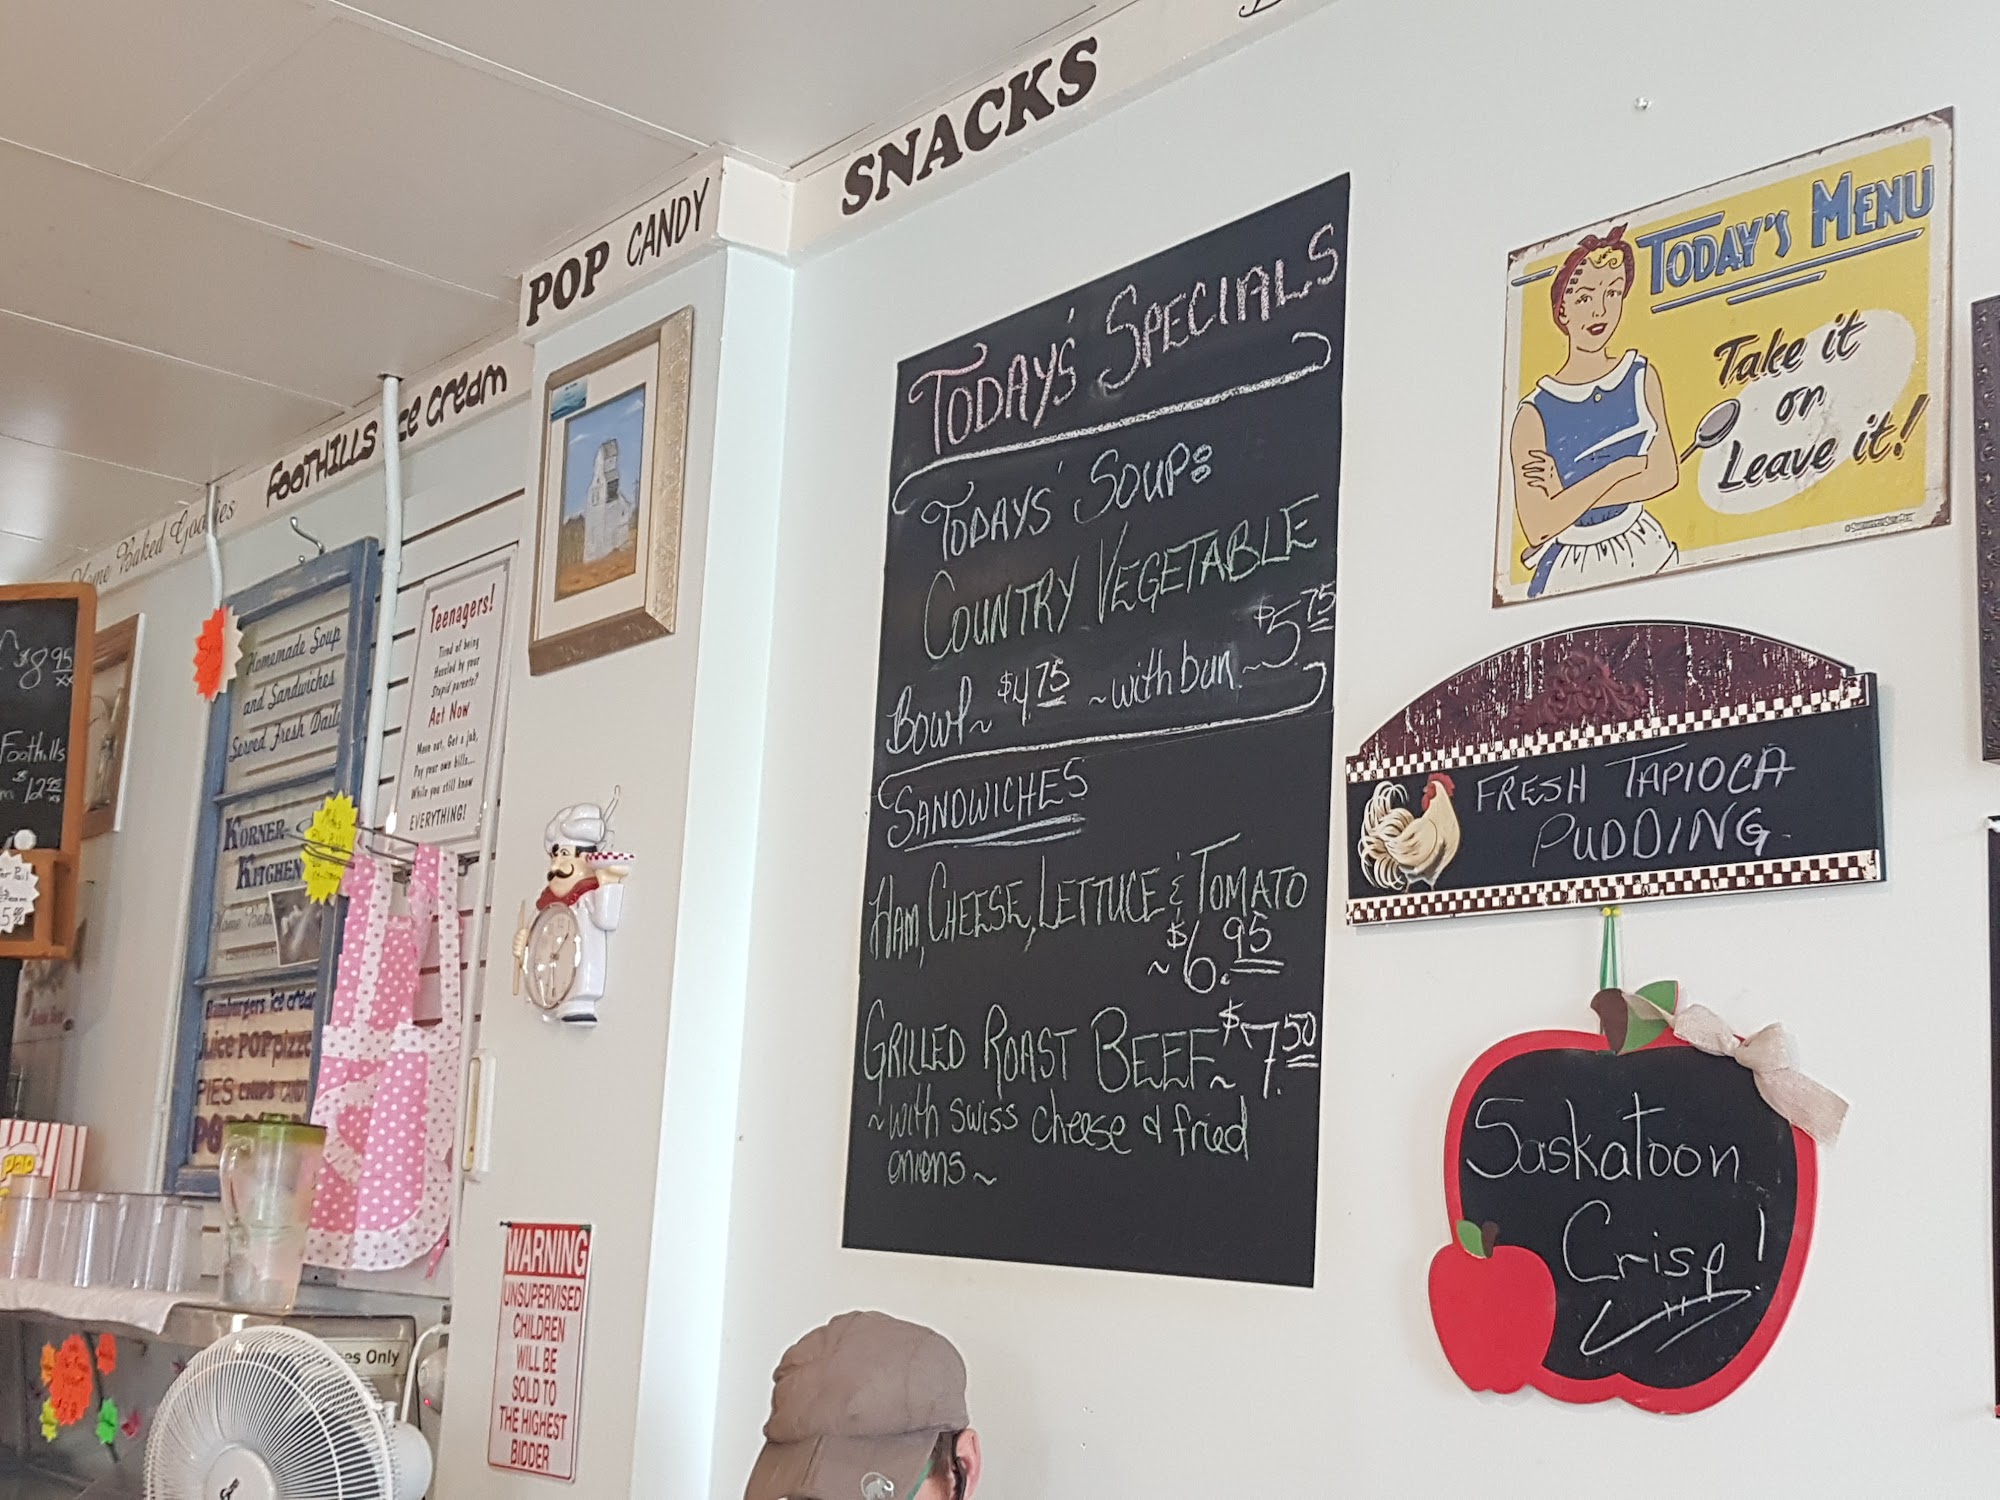 SNACKS
POP CANDY
FOOTHILLS ice cream
Home Baked Goodies
TODAY'S SPECIALS
TODAYS' SOUP:
COUNTRY VEGETABLE
Bowl ~ $4.75 ~ with bun ~ $5.75
SANDWICHES
HAM, CHEESE, LETTUCE & TOMATO
~ $6.95
GRILLED ROAST BEEF ~ $7.50
~ with swiss cheese & fried
onions ~
TODAY'S MENU
Take it
or
Leave it!
FRESH TAPIOCA
PUDDING
Saskatoon
Crisp!
Teenagers!
Tired of being
Hassled by your
Stupid parents?
Act Now
Move out, Get a job,
Pay your own bills...
While you still know
EVERYTHING!
Homemade Soup
and Sandwiches
Served Fresh Daily
KORNER
KITCHEN
Home Bak
Hamburgers ice cream
Juice POP pizza
PIES CHIPS CANDY
PO
WARNING
UNSUPERVISED
CHILDREN
WILL BE
SOLD TO
THE HIGHEST
BIDDER
8.95
Foothills
$12.95
pop
es Only